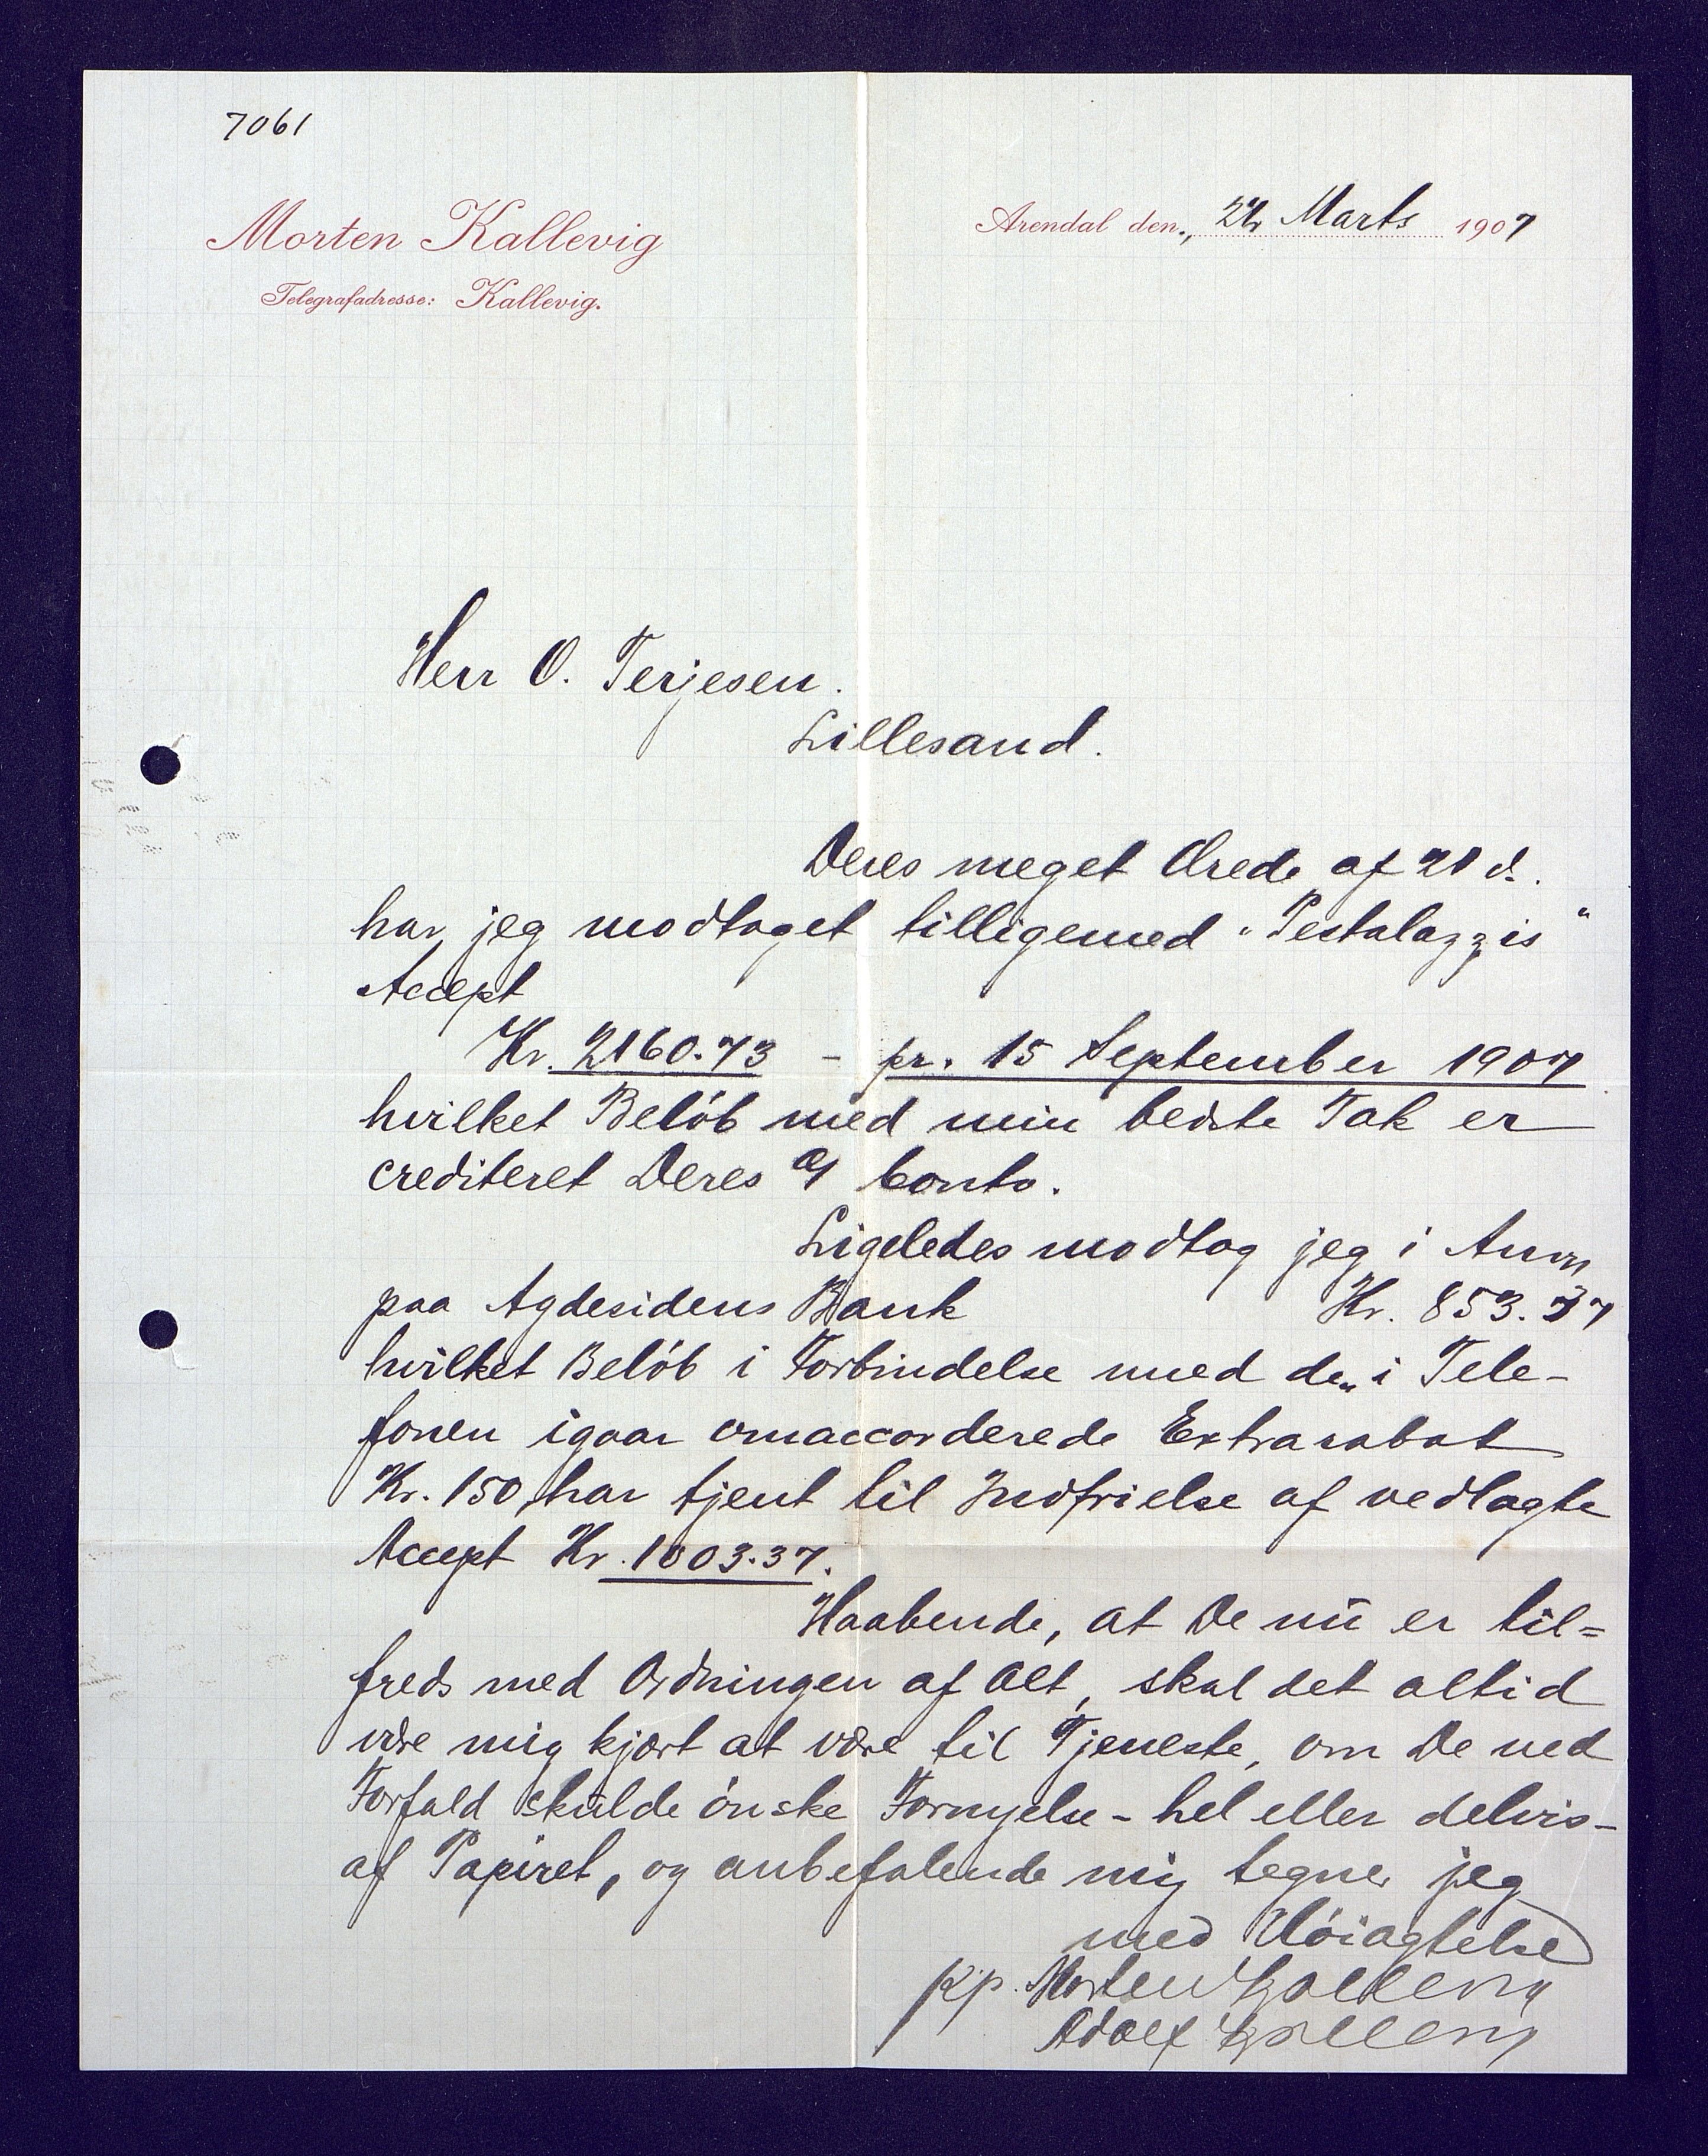 7061
Morten Kallevig
Telegrafadresse: Kallevig.
Arendal den 22 Marts 1907
Herr O. Terjesen.
Lillesand.
Deres meget Ærede af 21 ds.
har jeg modtaget tilligemed "Pestalozzis"
Accept
Kr. 2160.73 - pr. 15 September 1907
hvilket Beløb med min bedste Tak er
crediteret Deres a/ Conto.
Ligeledes modtog jeg i Anvn
paa Agdesidens Bank Kr. 853.37
hvilket Beløb i Forbindelse med den i Tele-
fonen igaar omaccorderede Extrarabat
Kr. 150, har tjent til Indfrielse af vedlagte
Accept Kr. 1003.37.
Haabende, at De nu er til=
freds med Ordningen af Alt, skal det altid
være mig kjært at være til Tjeneste, om De ved
Forfald skulde ønske Fornyelse - hel eller delvis -
af Papiret, og anbefalende mig tegner jeg
med Høiagtelse
pp. Morten Kallevig
Adolf Kallevig